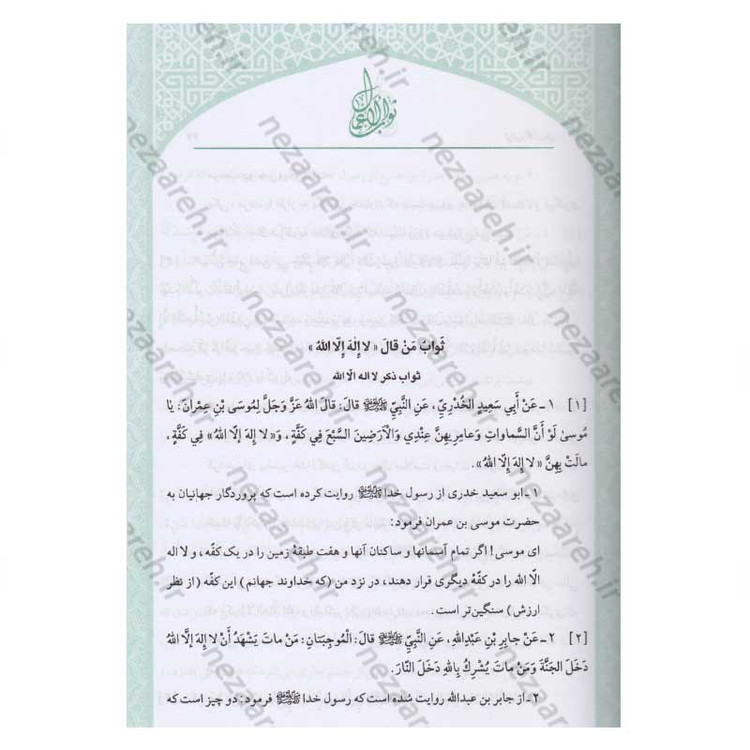 ثواب الاعمال
ثَوابُ مَنْ قالَ «لا إِلٰهَ إِلَّا اللهُ»
ثواب ذکر لا اله الّا الله
[۱] ۱ـ عَنْ أَبي سَعِيدٍ الْخُدْرِيِّ، عَنِ النَّبِيِّ ﷺ قالَ: قالَ اللهُ عَزَّ وَجَلَّ لِمُوسَى بْنِ عِمْرانَ: يا
مُوسىٰ لَوْ أَنَّ السَّماواتِ وَعامِرِيهِنَّ عِنْدِي وَالْأَرَضِينَ السَّبْعَ فِي كَفَّةٍ، وَ«لا إِلٰهَ إِلَّا اللهُ» فِي كَفَّةٍ،
مالَتْ بِهِنَّ «لا إِلٰهَ إِلَّا اللهُ».
۱ـ ابو سعید خدری از رسول خدا ﷺ روایت کرده است که پروردگار جهانیان به
حضرت موسی بن عمران فرمود:
ای موسی! اگر تمام آسمانها و ساکنان آنها و هفت طبقهٔ زمین را در یک کفّه، و لا اله
الّا الله را در کفّهٔ دیگری قرار دهند، در نزد من (که خداوند جهانم) این کفّه (از نظر
ارزش) سنگین‌تر است.
[۲] ۲ـ عَنْ جابِرِ بْنِ عَبْدِاللهِ، عَنِ النَّبِيِّ ﷺ قالَ: الْمُوجِبَتانِ: مَنْ ماتَ يَشْهَدُ أَنْ لا إِلهَ إِلَّا اللهُ
دَخَلَ الْجَنَّةَ وَمَنْ ماتَ يُشْرِكُ بِاللهِ دَخَلَ النّارَ.
۲ـ از جابر بن عبدالله روایت شده است که رسول خدا ﷺ فرمود: دو چیز است که
nezaareh.ir
nezaareh.ir
nezaareh.ir
nezaareh.ir
nezaareh.ir
nezaareh.ir
nezaareh.ir
nezaareh.ir